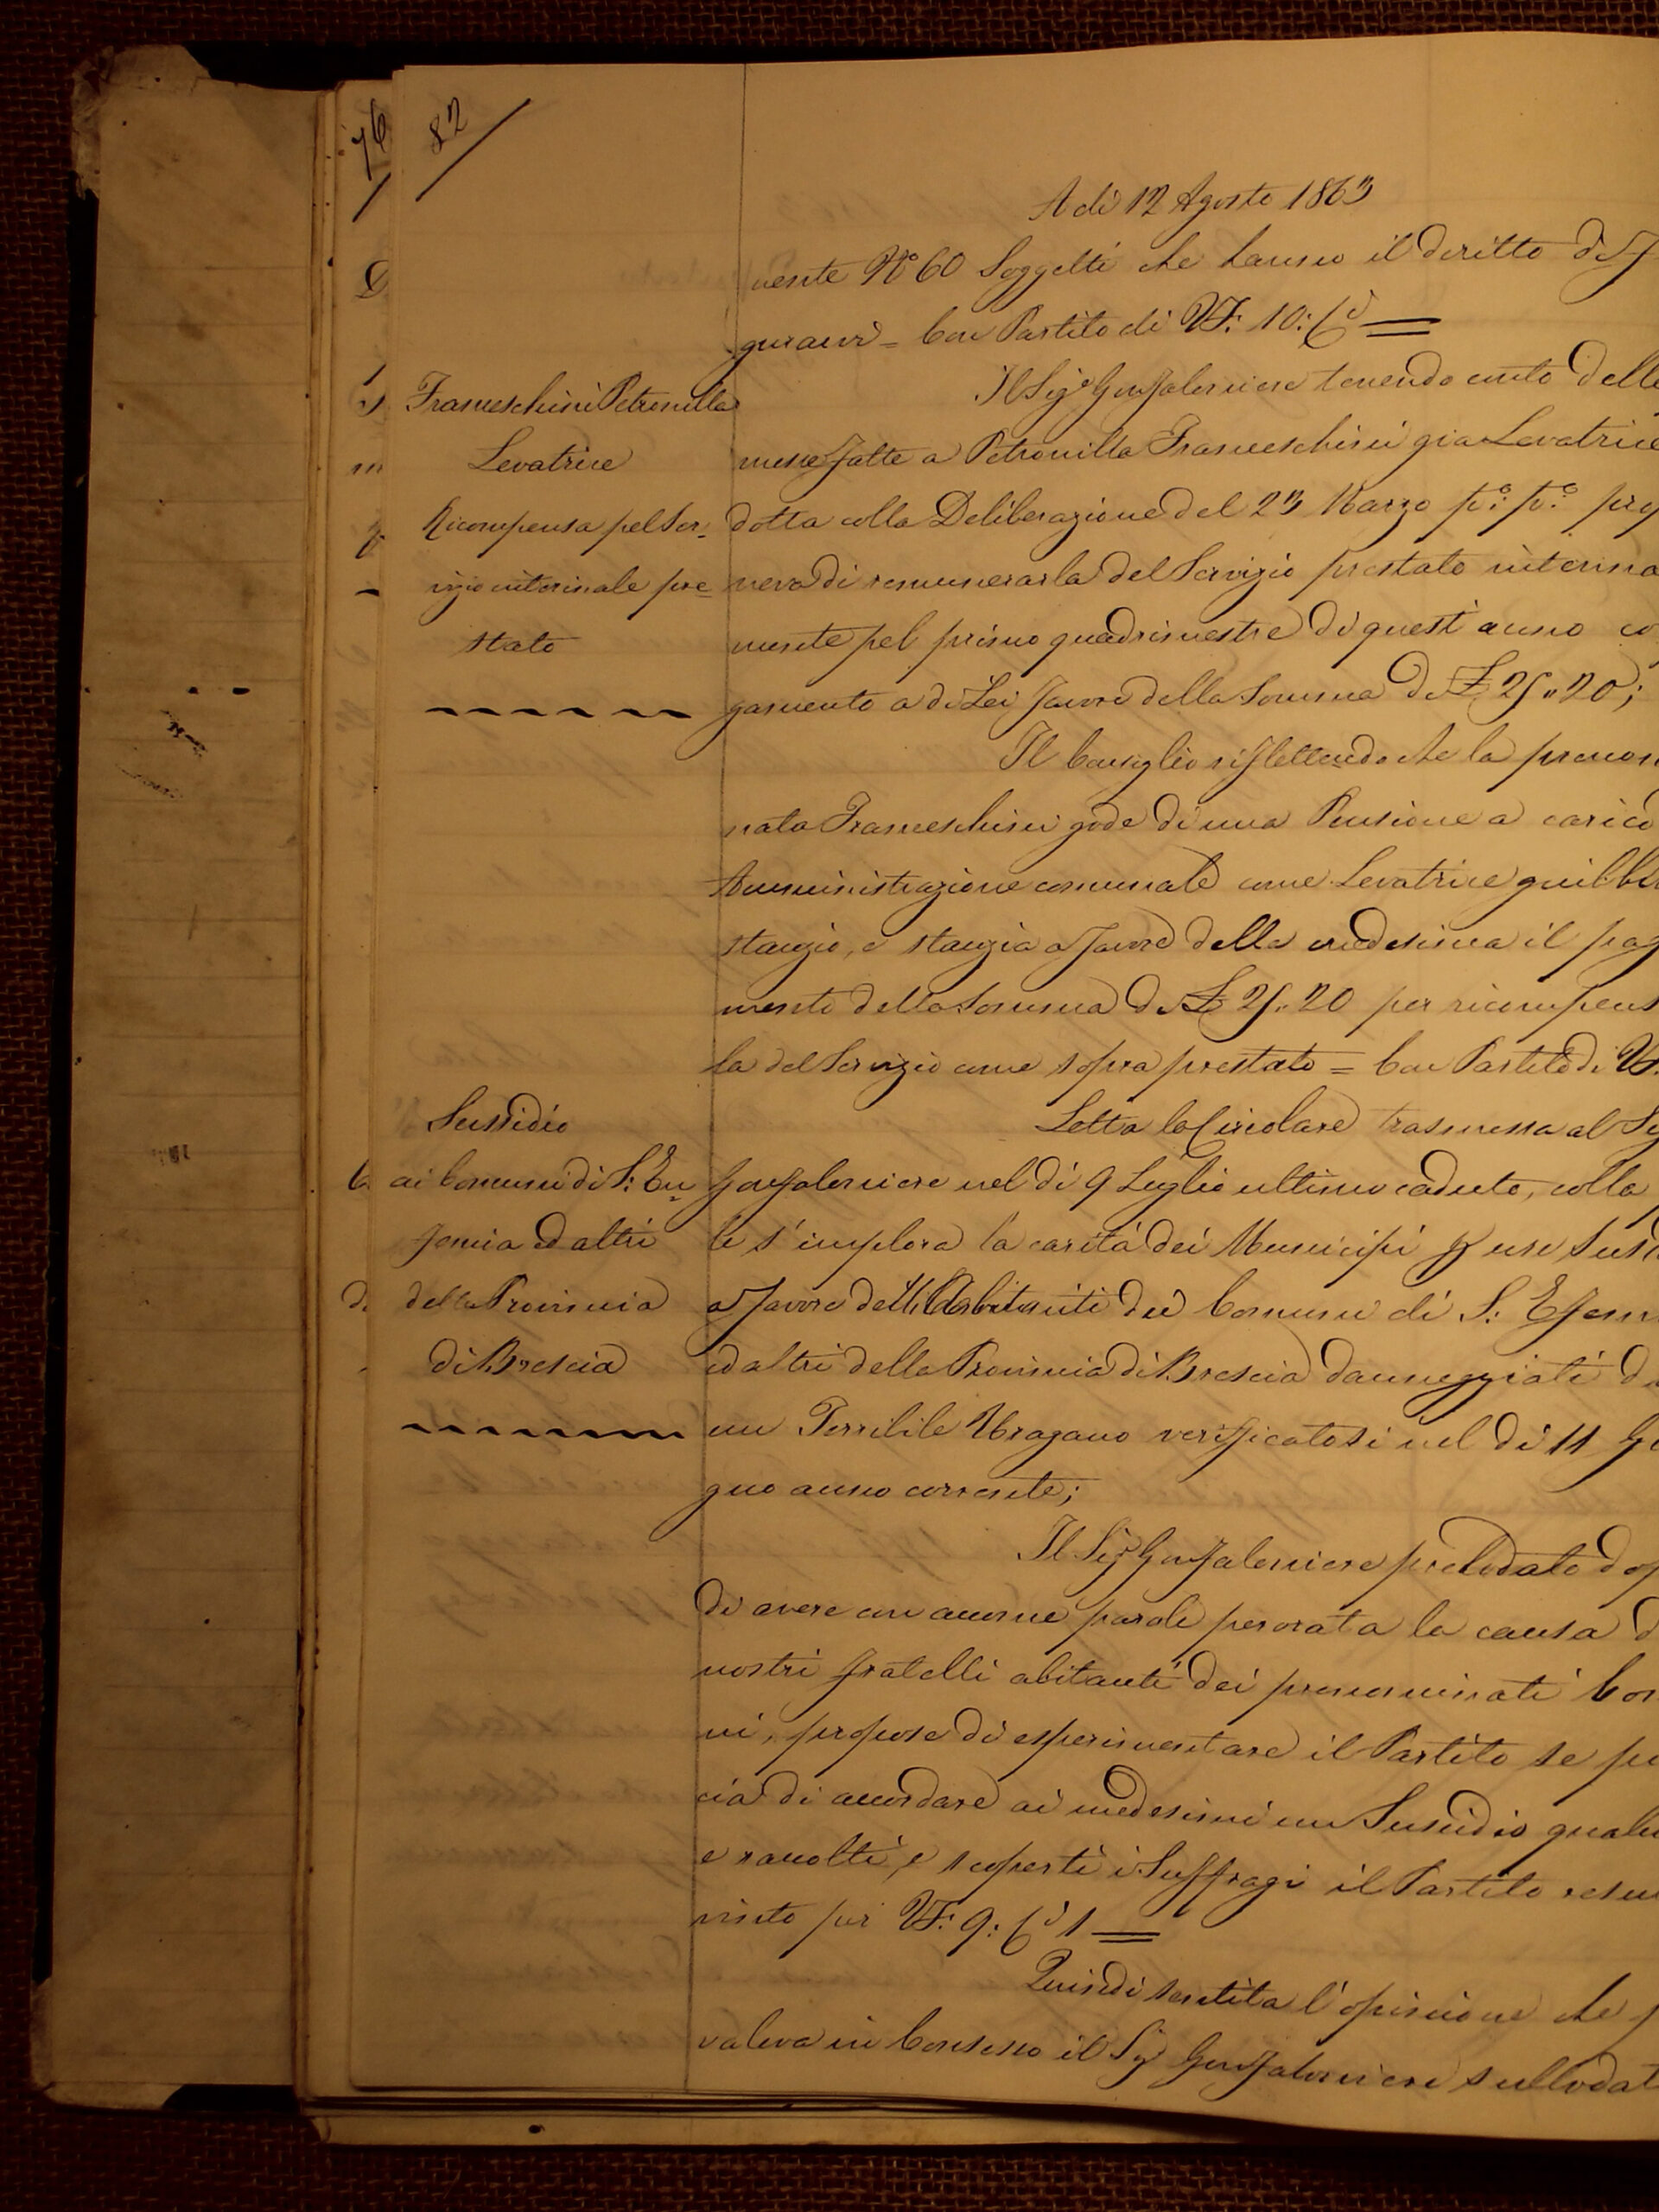 76
82
A dì 12 Agosto 1863
nente N° 60 Soggetti che hanno il diritto di f
gurarvi = Con Partito di VF: 10: Ci =
Franceschini Petronilla
Levatrice
Ricompensa pel Ser-
vizio interinale pre=
stato
Il Sigr Gonfaloniere tenendo conto delle
messe fatte a Petronilla Franceschini già Levatrice
dotta colla Deliberazione del 23 Marzo po: po: prop
neva di remunerarla del Servizio prestato interina
mente pel primo quadrimestre di quest'anno co
gamento a di Lei favore della Somma di £ 25,,20;
Il Consiglio riflettendo che la prenom
nata Franceschini gode di una Pensione a carico
Amministrazione comunale come Levatrice
stanzio, e stanzia a favore della medesima il pag
mento della Somma di £ 25,,20 per ricompens
la del Servizio come sopra prestato = Con Partito di VF.
Sussidio
ai Comuni di S: Eu=
femia ed altri
della Provincia
di Brescia
Letta la Circolare trasmessa al Sig
Gonfaloniere nel dì 9 Luglio ultimo caduto, colla
le s'implora la carità dei Municipi p un Suss
a favore delli Abitanti dei Comuni di S: Efem
ed altri della Provincia di Brescia danneggiati d
un Terribile Uragano verificatosi nel dì 11 Gi
gno anno corrente;
Il Sigr Gonfaloniere prelodato dop
di avere con acconcie parole perorata la causa d
nostri fratelli abitanti dei prenominati Com
ni, propose di esperimentare il Partito se pi
cia di accordare ai medesimi un Sussidio qualu
e raccolti, e scoperti i Suffragi il Partito resu
vinto per VF: 9: Ci 1 =
Quindi sentita l'opinione che p
valeva in Consesso il Sigr Gonfaloniere sullodat